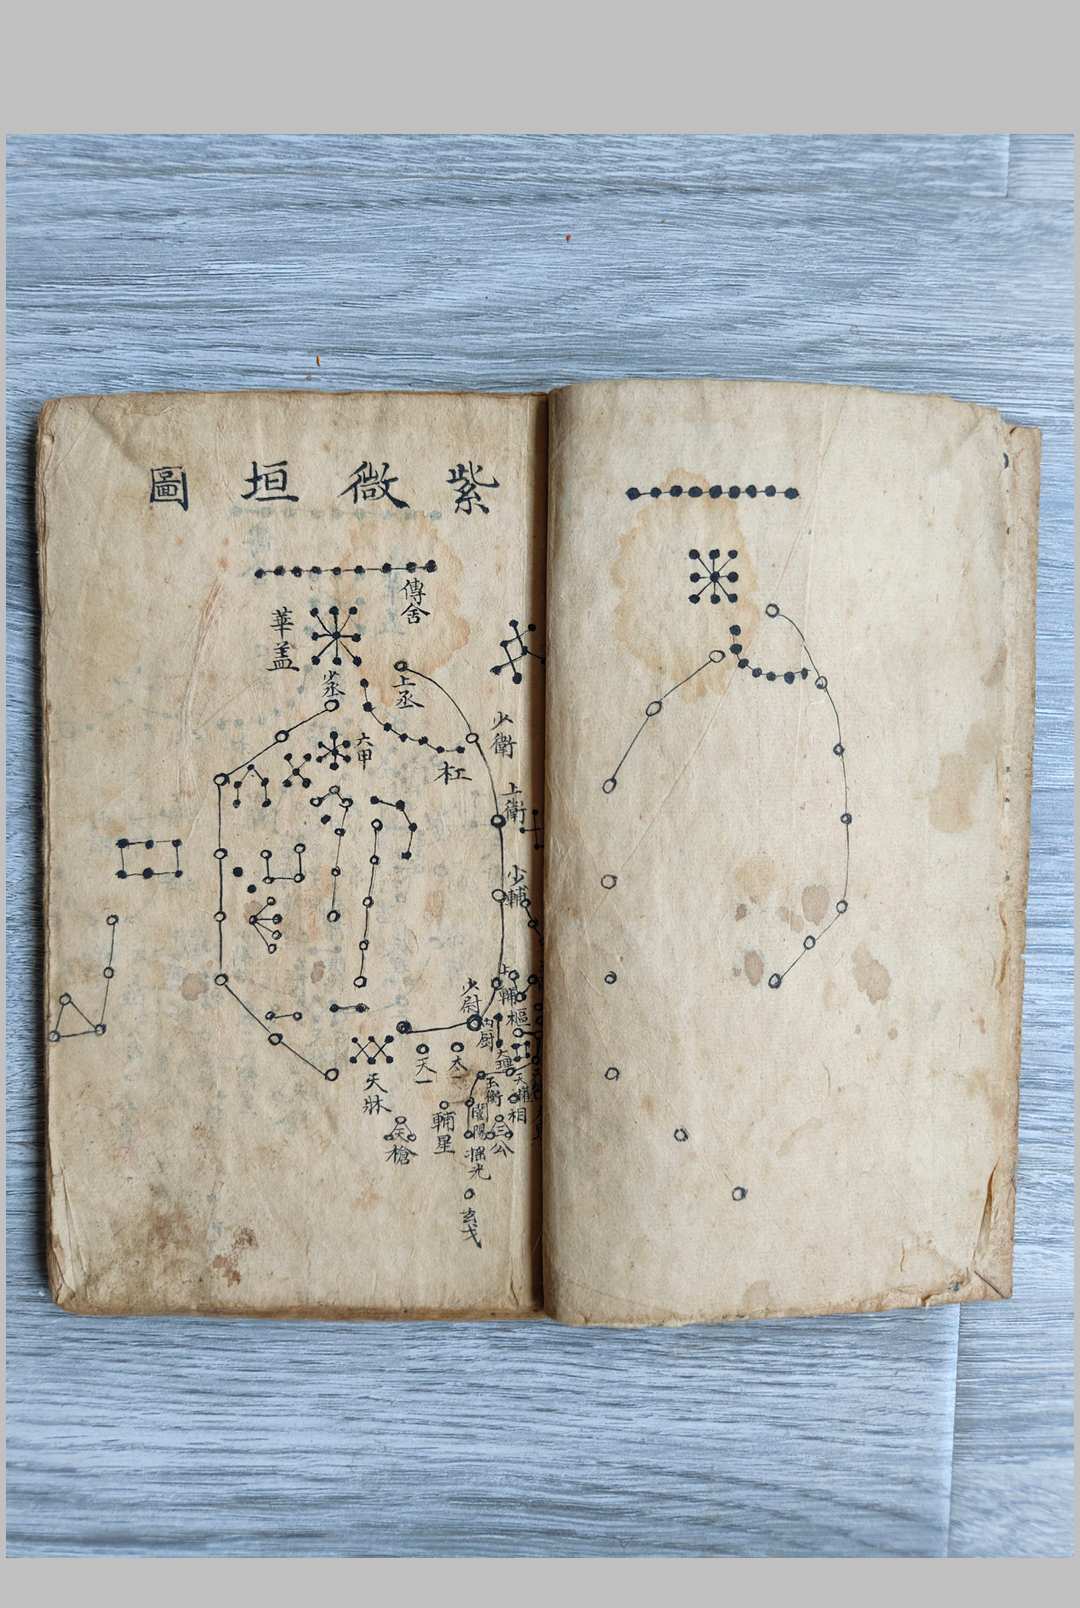 紫微垣圖
傳舍
華盖
上丞
少丞
少衛
六甲
杠
上衛
少輔
上輔
少尉
内厨
樞
天一
太一
玉衡
天牀
輔星
相
開陽
三公
天槍
搖光
玄戈